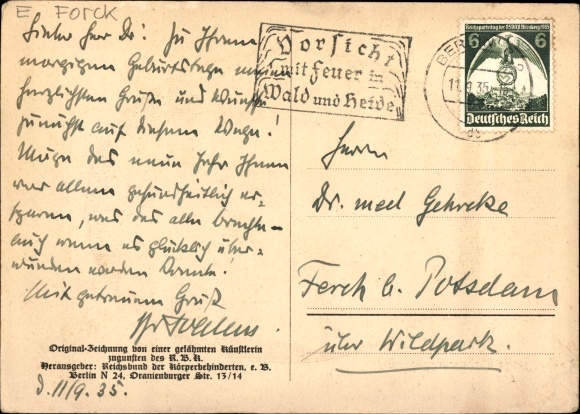 E. Forck
Lieber Herr Dr.! Zu Ihrem
morgigen Geburtstage meine
herzlichsten Grüße und Wünsche
zunächst auf diesem Wege!
Möge das neue Jahr Ihnen
vor allem gesundheitlich er-
sparen, was das alte brachte –
auch wenn es glücklich über-
wunden werden konnte!
Mit getreuem Gruß
Original-Zeichnung von einer gelähmten Künstlerin
zugunsten des R.B.K.
Herausgeber: Reichsbund der Körperbehinderten, e. V.
Berlin N 24, Oranienburger Str. 13/14
d. 11/9. 35.
Vorsicht
mit Feuer in
Wald und Heide
BER
11.9.35
Reichsparteitag der NSDAP Nürnberg 1935
6 6
Deutsches Reich
Herrn
Dr. med Gehrcke
Ferch b. Potsdam
über Wildpark.